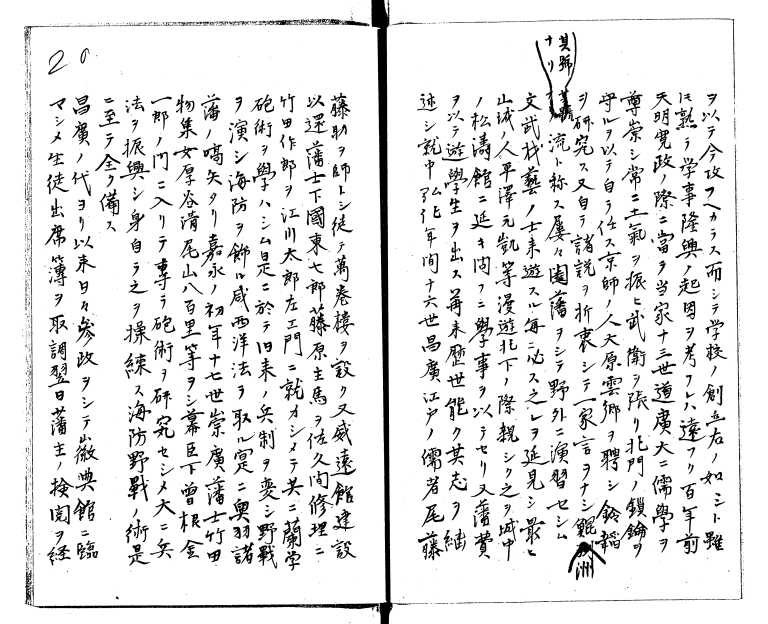 ヲ以テ今改フヘカラス而シテ学校ノ創立右ノ如シト雖
モ熟々学事隆興ノ起因ヲ考フレハ遠フリ百年前
天明寛政ノ際ニ當ヲ当家十三世道廣大ニ儒學ヲ
尊崇シ常ニ士氣ヲ振ヒ武衛ヲ張リ北門ノ鎖鑰ヲ
守ルヲ以テ自ラ任ス京師ノ人大原雲卿ヲ聘シ鈴韜
ヲ研究ス又自ラ諸説ヲ折衷シテ一家言ヲナシ
其號
ナリ
流ト称ス屢々闔藩ヲシテ野外ニ演習セシム
文武材藝ノ士来遊スル毎ニ必ス之レヲ延見シ最モ
山城ノ人平澤元凱等漫遊北下ノ際親シク之ヲ城中
ノ松濤館ニ延キ問フニ學事ヲ以テセリ又藩費
ヲ以テ遊學生ヲ出ス爾来歴世能ク其志ヲ紹
述シ就中弘化年間十六世昌廣江戸ノ儒者尾藤
20
藤助ヲ師トシ徒テ萬巻樓ヲ設ク又威遠館建設
以還藩士下國東七郎藤原主馬ヲ佐久間修理ニ
竹田作郎ヲ江川太郎左エ門ニ就カシメテ共ニ蘭学
砲術ヲ學ハシム是ニ於テ旧来ノ兵制ヲ変シ野戰
ヲ演シ海防ヲ飾ル咸西洋法ヲ取ル寔ニ奥羽諸
藩ノ嚆矢タリ嘉永ノ初年十七世崇廣藩士竹田
物集女厚谷清尾山八百里等ヲシ幕臣下曽根金
一郎ノ門ニ入リテ専ラ砲術ヲ研究セシメ大ニ兵
法ヲ振興シ身自ラ之ヲ操練ス海防野戰ノ術是
ニ至テ全ク備ス
昌廣ノ代ヨリ以来日々参政ヲシテ徽典館ニ臨
マシメ生徒出席簿ヲ取調翌日藩主ノ検閲ヲ経